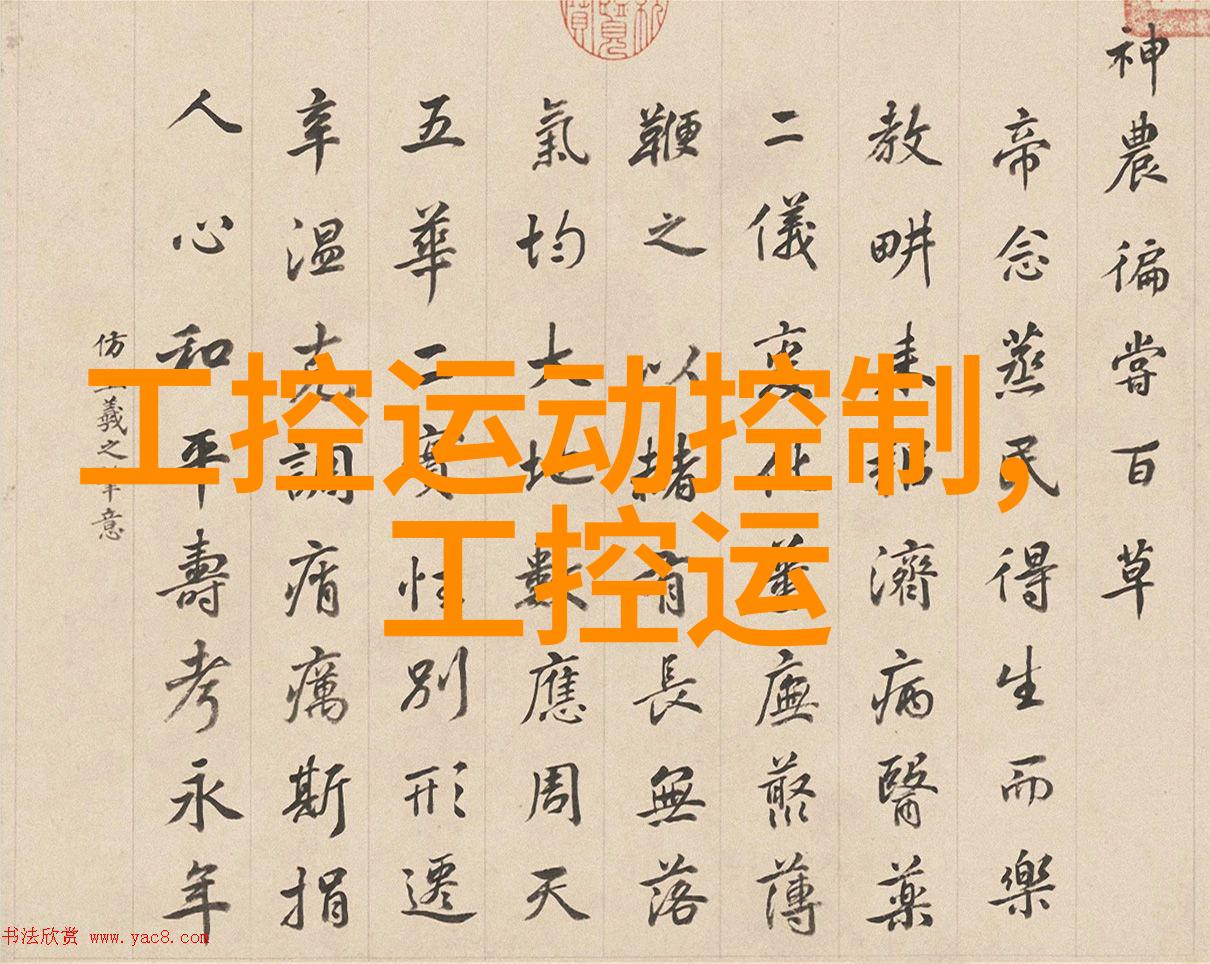 神農徧嘗百草
帝念蒸民得生而樂
教畊耒濟病醫藥
二儀化廡薄
鞭之以赭有長無落
氣均大地數應周天
五華二實性別形遷
辛温克調痟癘斯捐
人心和平壽考永年
仿羲之意
工控运动控制,
工控运
书法欣赏 www.yac8.com